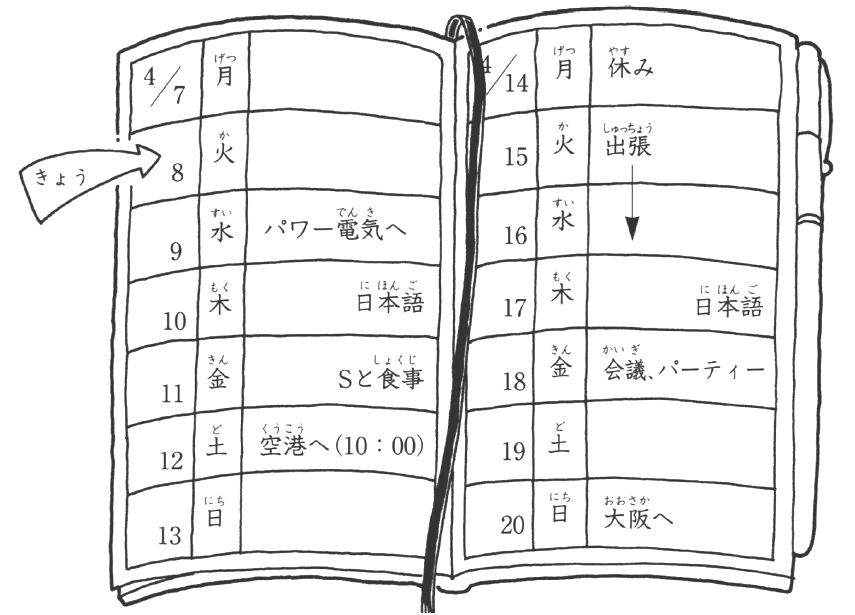 きょう
4/7 月 げつ
8 火 か
9 水 すい パワー電気へ でんき
10 木 もく 日本語 にほんご
11 金 きん Sと食事 しょくじ
12 土 ど 空港へ(10：00) くうこう
13 日 にち
4/14 月 げつ 休み やす
15 火 か 出張 しゅっちょう
16 水 すい
17 木 もく 日本語 にほんご
18 金 きん 会議、パーティー かいぎ
19 土 ど
20 日 にち 大阪へ おおさか